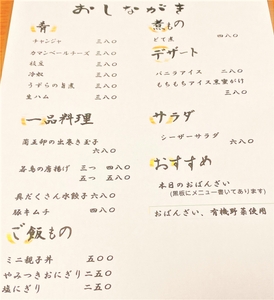 おしながき
肴
チャンジャ 三八〇
カマンベールチーズ 三八〇
枝豆 三八〇
冷奴 三八〇
うずらの旨煮 三八〇
生ハム 三八〇
一品料理
蘭王卵の出巻き玉子 六八〇
若鳥の唐揚げ 三つ 四八〇
五つ 七八〇
具だくさん水餃子 六八〇
豚キムチ 四八〇
ご飯もの
ミニ親子丼 五〇〇
やみつきおにぎり 二五〇
塩にぎり 二五〇
煮もの
どて煮 四八〇
デザート
バニラアイス 二八〇
もちもちアイス黒蜜がけ
三八〇
サラダ
シーザーサラダ
六八〇
おすすめ
本日のおばんざい
(黒板にメニュー書いてあります)
おばんざい、有機野菜使用